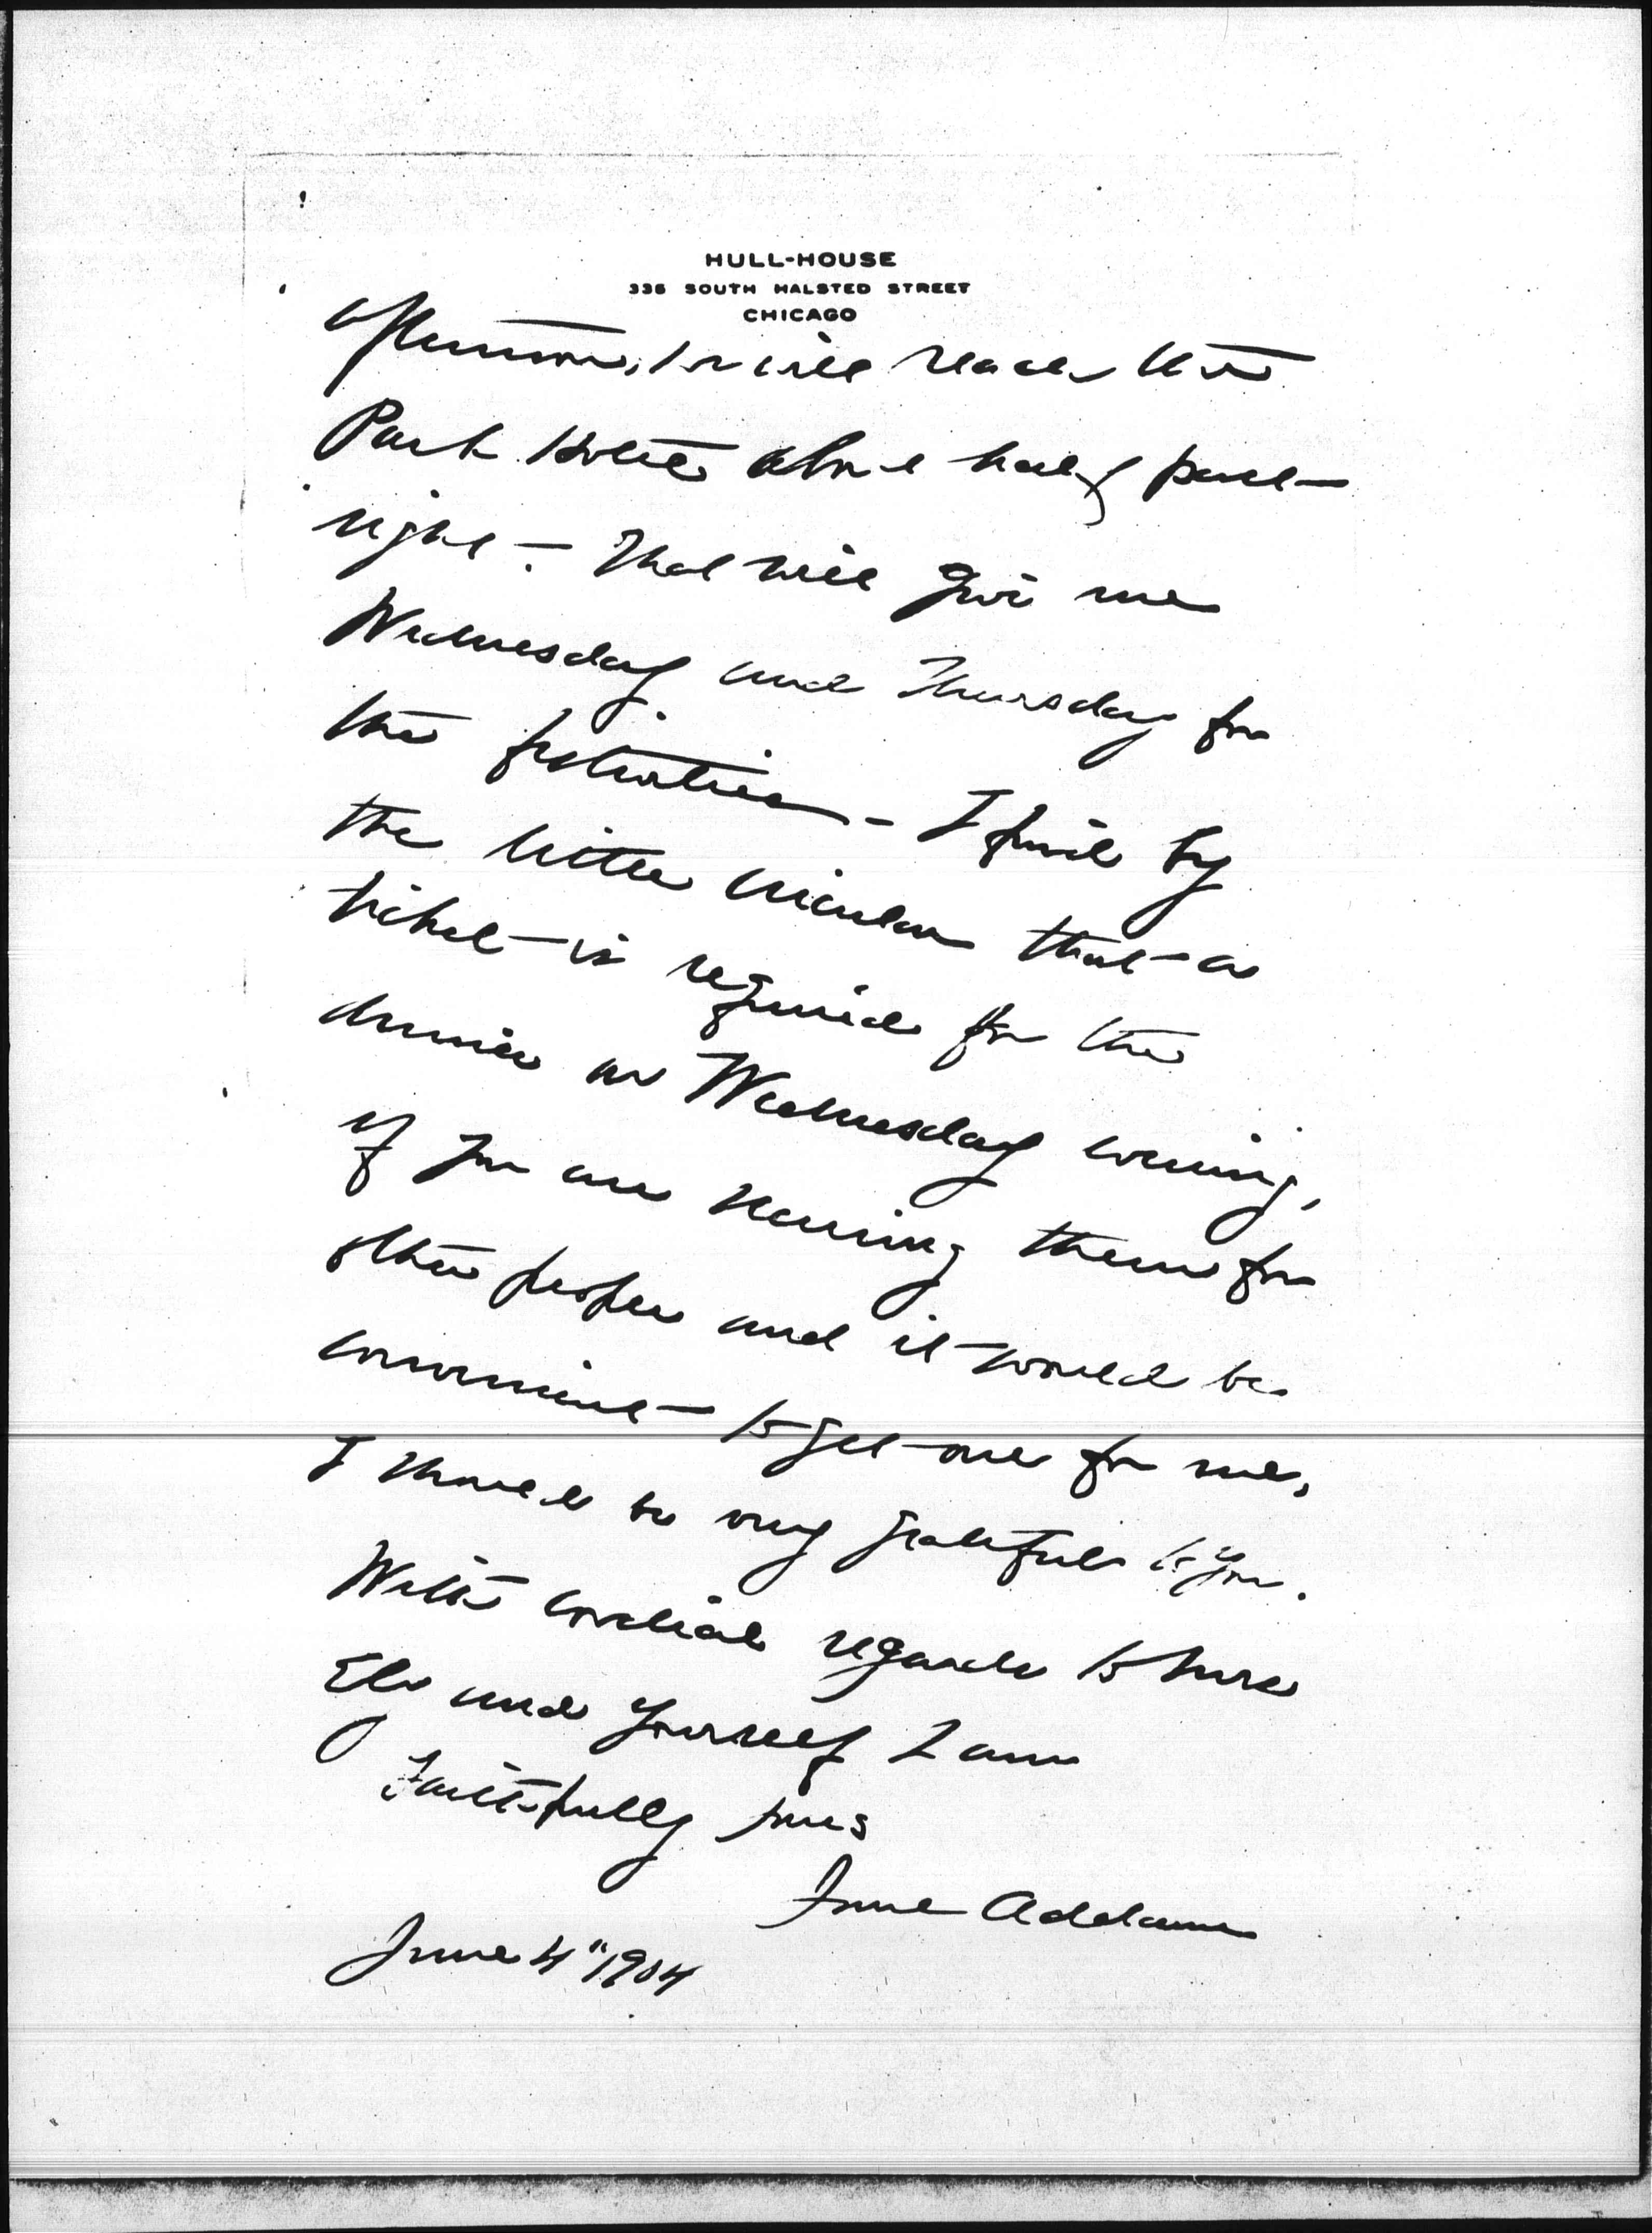 HULL-HOUSE
335 SOUTH HALSTED STREET
CHICAGO
afternoon, & will reach the
Park Hotel about half past
eight - That will give me
Wednesday and Thursday for
the festivities - I find by
the little circular that a
ticket is required for the
dinner on Wednesday evening,
if you are securing them for
other people and it would be
convenient to get one for me,
I should be very grateful to you.
With cordial regards to Mrs
Ely and yourself I am
Faithfully yours
Jane Addams
June 4" 1904